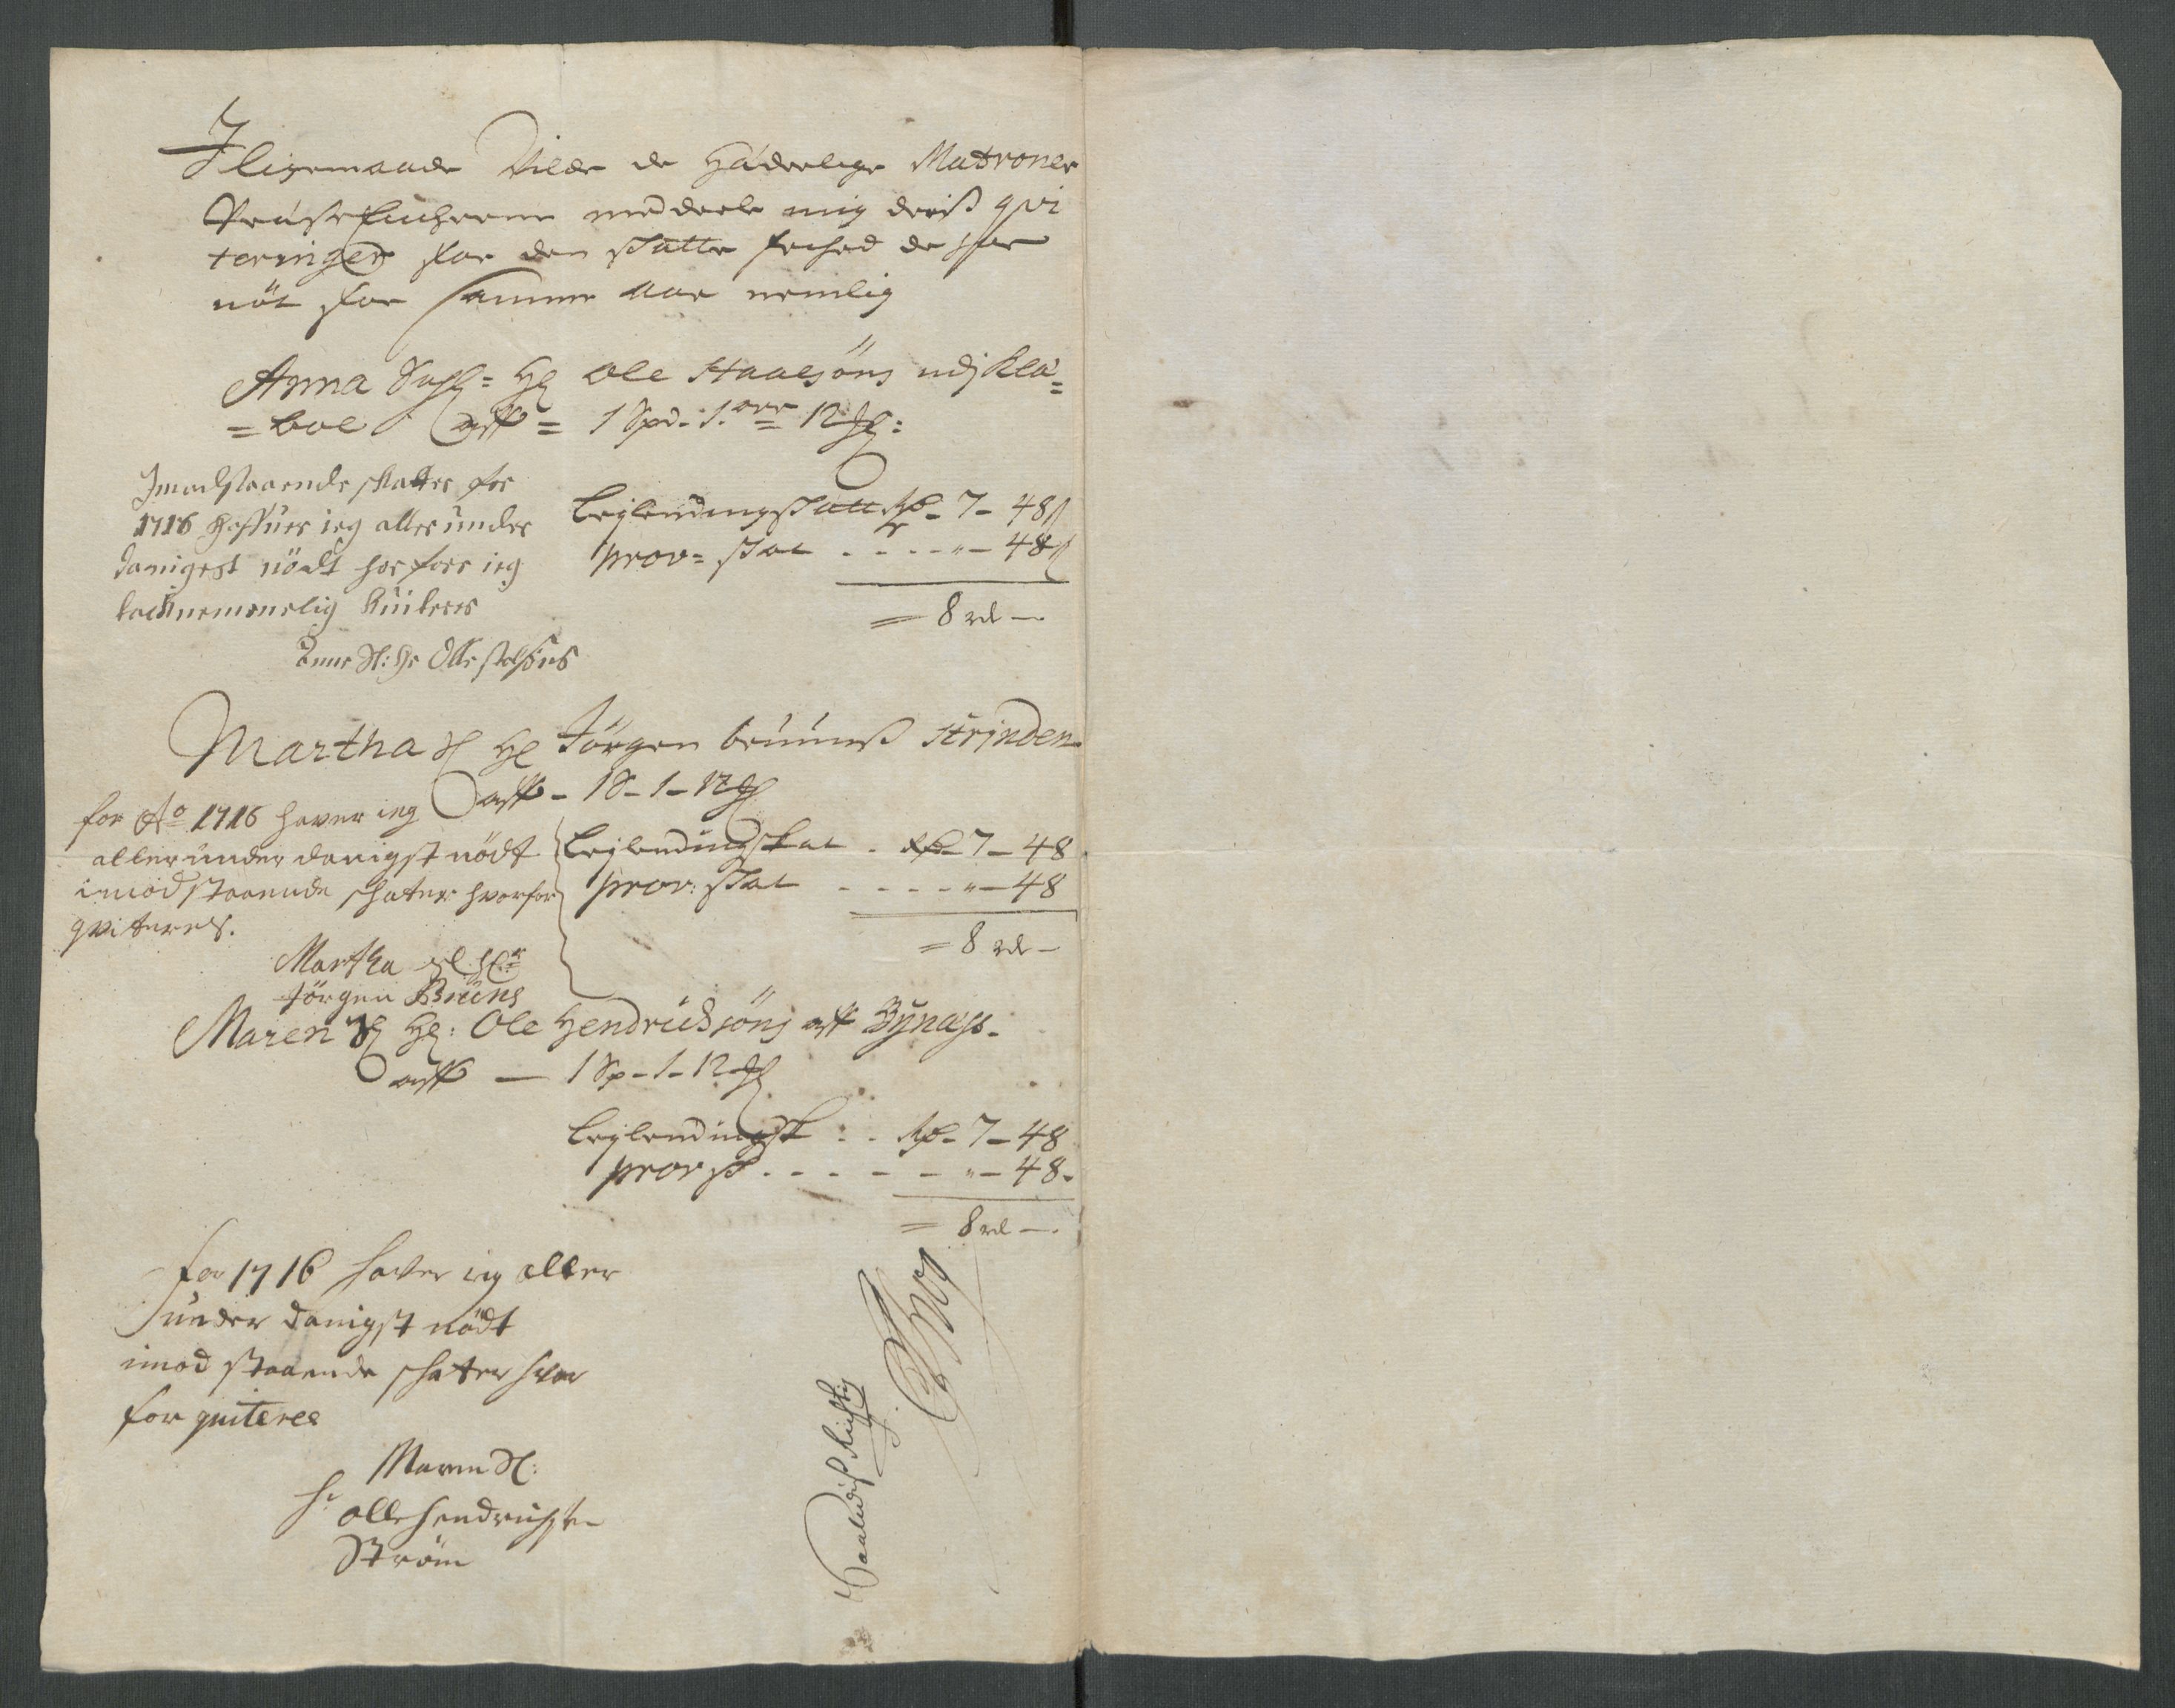 I ligemaade Vilde de Hæderlige Matroner
Præste Enckerne meddeele mig deriß qvi
teringer for den skatte frihed de har
nöt for samme aar nemlig
Anna Sahl= Hl Ole Staalsöns udj Klæ=
=boe aff = 1 Spd. 1. ore 12 Ml:
Imodstaaende skatter for
1716 haffuer ieg aller under
danigest nödt hor fore ieg
tacknemmelig kuiteres
Anne Sl: Hr Olle stolssöns
Leylendingskatt Rd. 7 - 48 s
prov= skat . - . . - " - 48 s
= 8 rd —
Martha Sl Hl Jörgen bruunß Strinden
aff - 1 S - 1 - 12 Ml
for Ao 1716 haver ieg
aller under danigst nödt
imodstaaende skatter hvorfor
qviteres.
Martha Sl Hr
Jörgen Bruuns
Leylendingskat . Rd. 7 - 48
prov: skat . - - . . " - 48
= 8 rd —
Maren Sl Hl: Ole Hendricksöns aff Bynæss.
aff — 1 Sp - 1 - 12 Ml
Leylendingsk . . Rd. 7 - 48
prov sk . - . - - " - 48.
= 8 rd —.
for 1716 haver ieg aller
under danigst nödt
imod staaende skatter hvor
for quiteres
Maren Sl:
Hr olle Hendrichsen
Ström